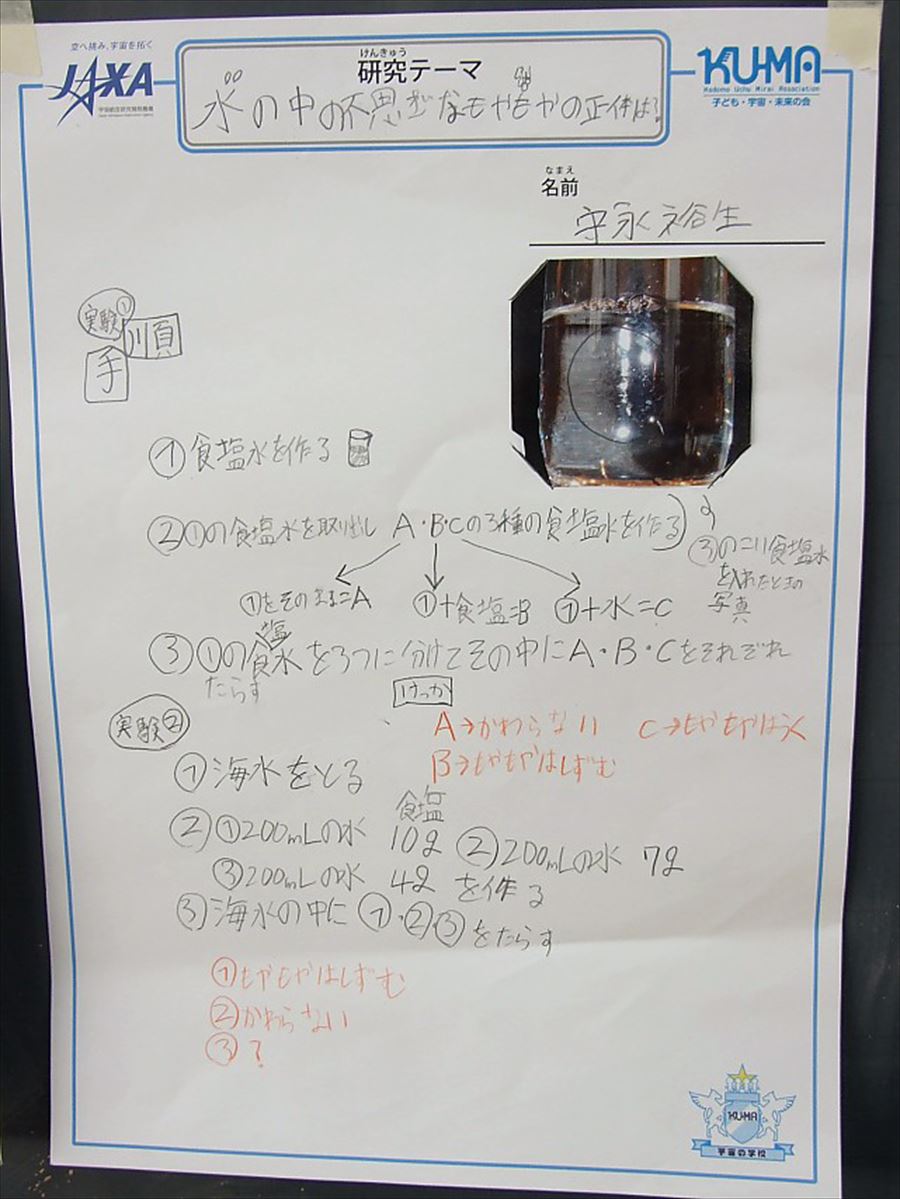 空へ挑み、宇宙を拓く
JAXA
宇宙航空研究開発機構
Japan Aerospace Exploration Agency
けんきゅう
研究テーマ
水の中の不思ぎなもやもやの正体は？
KU-MA
Kodomo Uchu Mirai Association
子ども・宇宙・未来の会
なまえ
名前
守永裕生
実験①
手順
①食塩水を作る
②①の食塩水を取り出し A・B・Cの3種の食塩水を作る
①をそのまま=A ①+食塩=B ①+水=C
③のこい食塩水
を入れたときの
写真
③①の食塩水を3つに分けてその中にA・B・Cをそれぞれ
たらす
けっか
A→かわらない C→もやもやはうく
B→もやもやはしずむ
実験②
①海水をとる
食塩
②①200mLの水 10g ②200mLの水 7g
③200mLの水 4g を作る
③海水の中に①・②・③をたらす
①もやもやはしずむ
②かわらない
③？
KU-MA
宇宙の学校